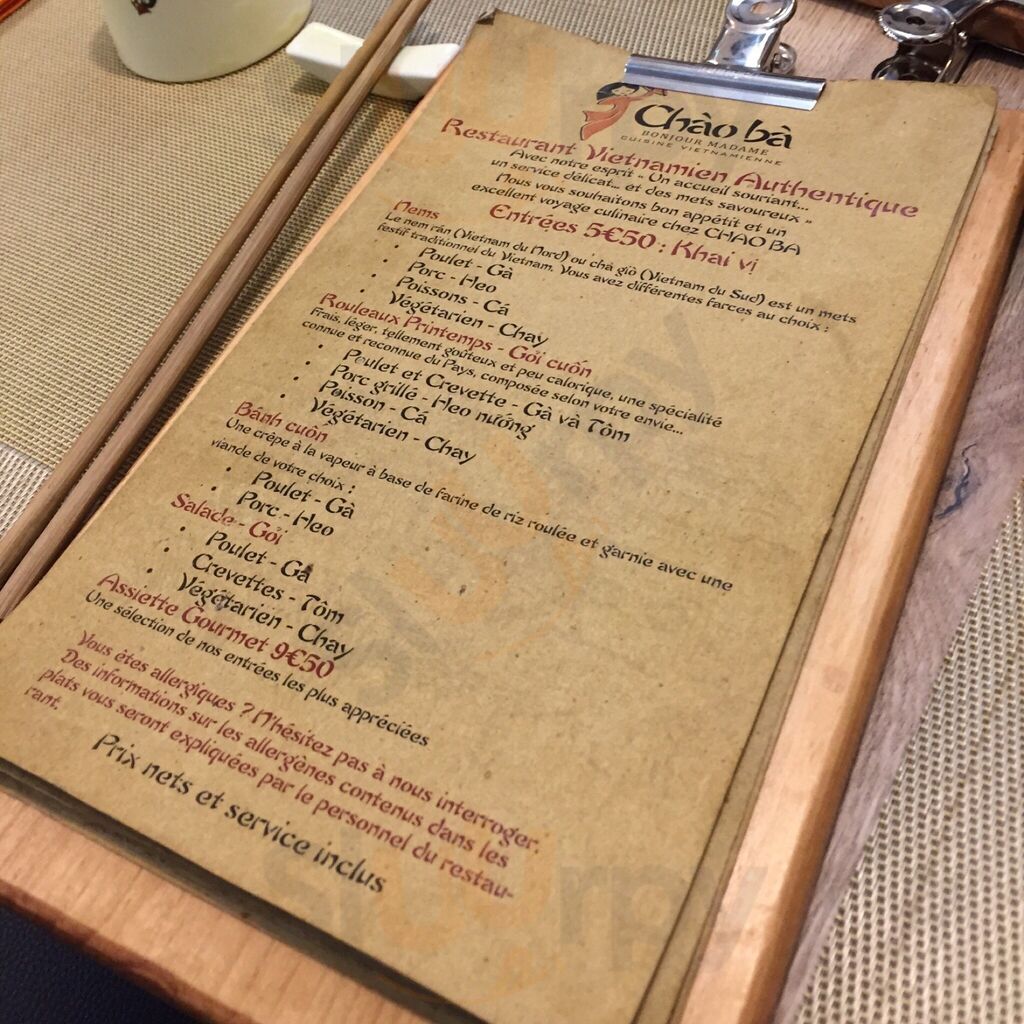 Chào bà
BONJOUR MADAME
CUISINE VIETNAMIENNE
Restaurant Vietnamien Authentique
Avec notre esprit « Un accueil souriant...
un service délicat... et des mets savoureux »
Nous vous souhaitons bon appétit et un
excellent voyage culinaire chez CHAO BA
Entrées 5€50 : Khai vị
Nems
Le nem rán (Vietnam du Nord) ou chả giò (Vietnam du Sud) est un mets
festif traditionnel du Vietnam. Vous avez différentes farces au choix :
• Poulet - Gà
• Porc - Heo
• Poissons - Cá
• Végétarien - Chay
Rouleaux Printemps - Gỏi cuốn
Frais, léger, tellement goûteux et peu calorique, une spécialité
connue et reconnue du Pays, composée selon votre envie...
• Poulet et Crevette - Gà và Tôm
• Porc grillé - Heo nướng
• Poisson - Cá
• Végétarien - Chay
Bánh cuốn
Une crêpe à la vapeur à base de farine de riz roulée et garnie avec une
viande de votre choix :
• Poulet - Gà
• Porc - Heo
Salade - Gỏi
• Poulet - Gà
• Crevettes - Tôm
• Végétarien - Chay
Assiette Gourmet 9€50
Une sélection de nos entrées les plus appréciées
Vous êtes allergiques ? N'hésitez pas à nous interroger.
Des informations sur les allergènes contenus dans les
plats vous seront expliquées par le personnel du restau-
rant.
Prix nets et service inclus
sluurpy
sluurpy
sluurpy